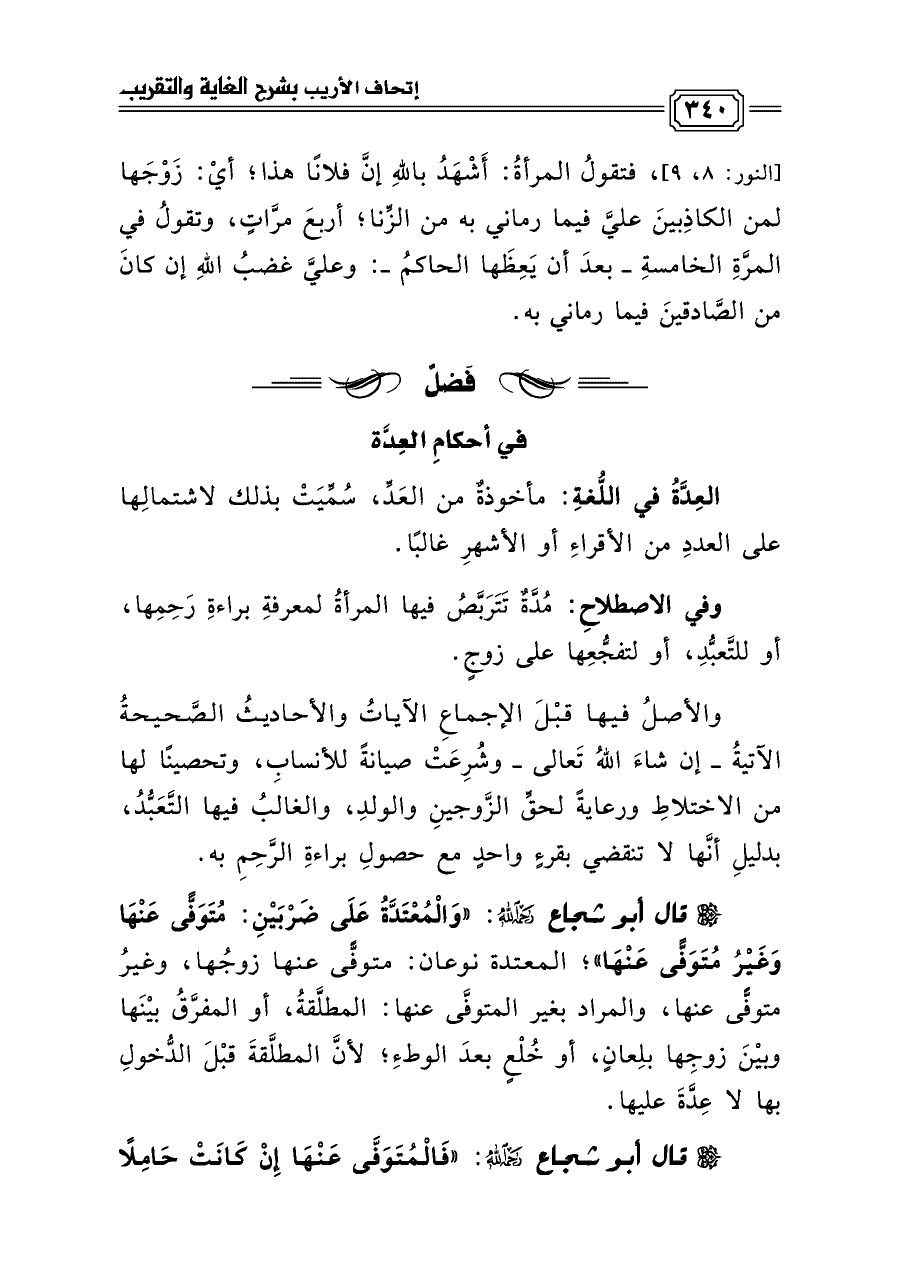 إتحاف الأريب بشرح الغاية والتقريب
٣٤٠
[النور: ٨، ٩]، فتقولُ المرأةُ: أَشْهَدُ باللهِ إنَّ فلانًا هذا؛ أيْ: زَوْجَها
لمن الكاذِبينَ عليَّ فيما رماني به من الزِّنا؛ أربعَ مرَّاتٍ، وتقولُ في
المرَّةِ الخامسةِ ـ بعدَ أن يَعِظَها الحاكمُ ـ: وعليَّ غضبُ اللهِ إن كانَ
من الصَّادقينَ فيما رماني به.
فَصْلٌ
في أحكامِ العِدَّة
العِدَّةُ في اللُّغةِ: مأخوذةٌ من العَدِّ، سُمِّيَتْ بذلك لاشتمالِها
على العددِ من الأقراءِ أو الأشهرِ غالبًا.
وفي الاصطلاحِ: مُدَّةٌ تَتَرَبَّصُ فيها المرأةُ لمعرفةِ براءةِ رَحِمِها،
أو للتَّعبُّدِ، أو لتفجُّعِها على زوجٍ.
والأصلُ فيها قبْلَ الإجماعِ الآياتُ والأحاديثُ الصَّحيحةُ
الآتيةُ ـ إن شاءَ اللهُ تَعالى ـ وشُرِعَتْ صيانةً للأنسابِ، وتحصينًا لها
من الاختلاطِ ورعايةً لحقِّ الزَّوجينِ والولدِ، والغالبُ فيها التَّعَبُّدُ،
بدليلِ أنَّها لا تنقضي بقرءٍ واحدٍ مع حصولِ براءةِ الرَّحِمِ به.
قال أبو شجاع رَحِمَهُ اللهُ: «وَالْمُعْتَدَّةُ عَلَى ضَرْبَيْنِ: مُتَوَفًّى عَنْهَا
وَغَيْرُ مُتَوَفًّى عَنْهَا»؛ المعتدة نوعان: متوفًّى عنها زوجُها، وغيرُ
متوفًّى عنها، والمراد بغير المتوفَّى عنها: المطلَّقةُ، أو المفرَّقُ بيْنَها
وبيْنَ زوجِها بلِعانٍ، أو خُلْعٍ بعدَ الوطءِ؛ لأنَّ المطلَّقةَ قبْلَ الدُّخولِ
بها لا عِدَّةَ عليها.
قال أبو شجاع رَحِمَهُ اللهُ: «فَالْمُتَوَفَّى عَنْهَا إِنْ كَانَتْ حَامِلًا